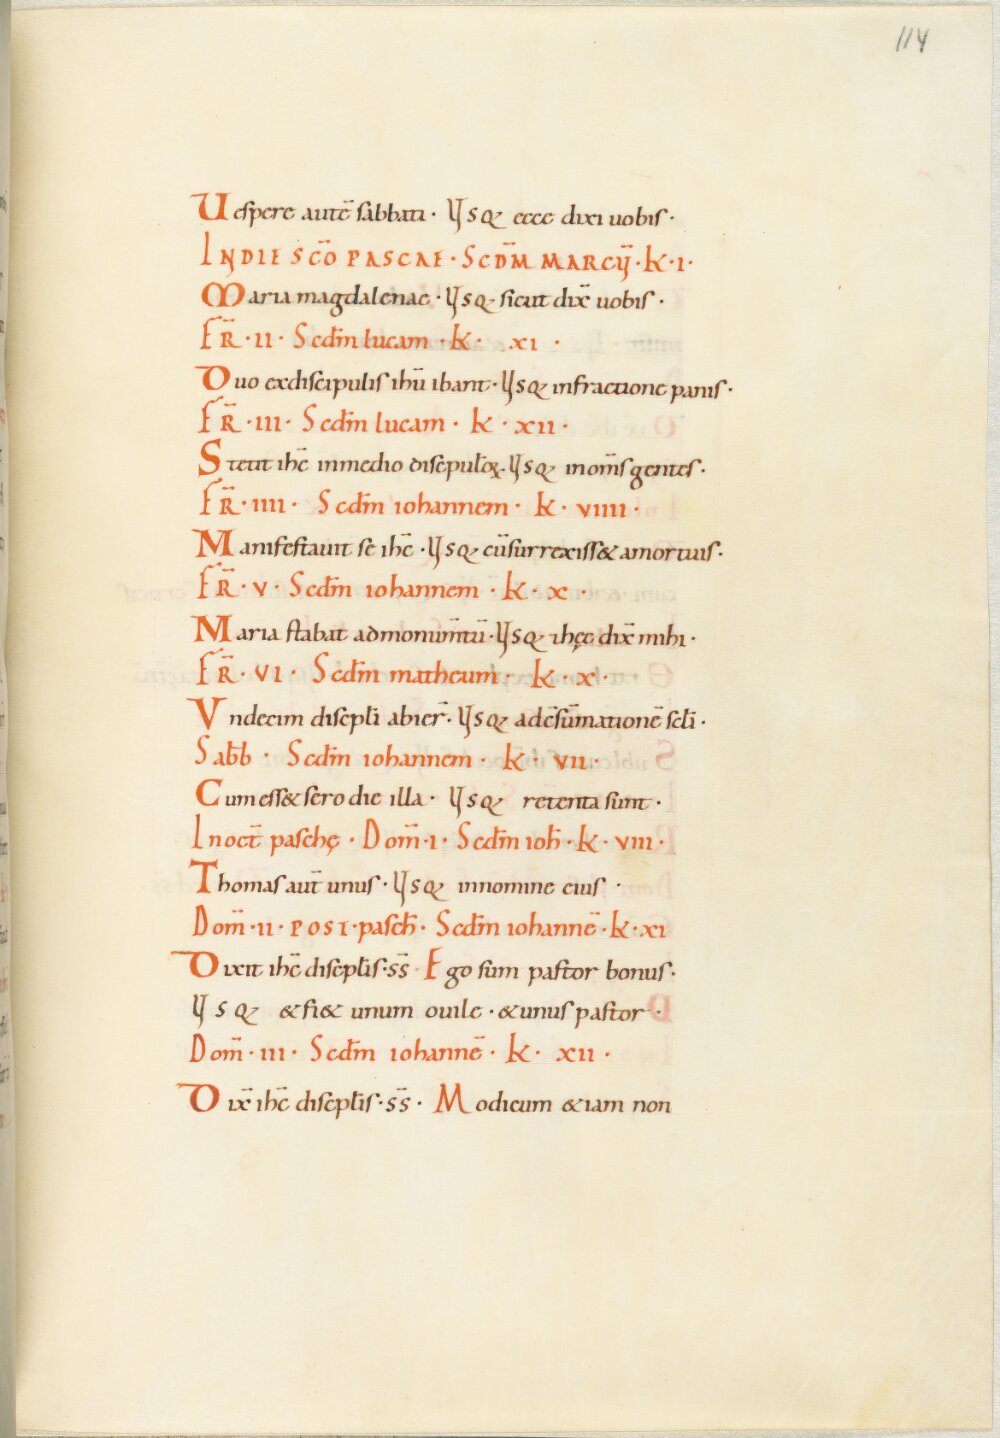 114
Uespere autē sabbati · Usq; ecce dixi uobis ·
IN DIE SCŌ PASCAE · SCDM̄ MARCŪ · k · I ·
Maria magdalenae · Usq; sicut dix̄ uobis ·
FR̄ · II · Scdm̄ lucam · k · XI ·
Duo exdiscipulis ihū ibant · Usq; infractione panis ·
FR̄ · III · Scdm̄ lucam · k · XII ·
Stetit ihc̄ inmedio discipuloꝝ · Usq; inom̄s gentes ·
FR̄ · IIII · Scdm̄ iohannem · k · VIIII ·
Manifestauit se ihc̄ · Usq; cū surrexiss& amortuis ·
FR̄ · V · Scdm̄ iohannem · k · X ·
Maria stabat admonum̄tū · Usq; ihęc dix̄ mihi ·
FR̄ · VI · Scdm̄ matheum · k · X ·
Vndecim discipli abier̄ · Usq; adc̄sūmationē scłi ·
Sabb̄ · Scdm̄ iohannem · k · VII ·
Cum ess& sero die illa · Usq; retenta sunt ·
In oct̄ paschę · Dom̄ · I · Scdm̄ ioh̄ · k · VIII ·
Thomas aut̄ unus · Usq; innomine eius ·
Dom̄ · II · POST · pasch̄ · Scdm̄ iohannē · k · XI
Dixit ihc̄ discipłis · s̄s̄ · Ego sum pastor bonus ·
Usq; & fi& unum ouile · & unus pastor ·
Dom̄ · III · Scdm̄ iohannē · k · XII ·
Dix̄ ihc̄ discipłis · s̄s̄ · Modicum & iam non